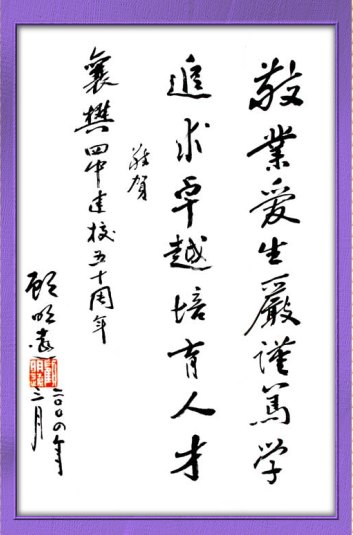 敬業爱生嚴謹篤学
追求卓越培育人才
敬贺
襄樊四中建校五十周年
顾明远
二〇〇四年
三月